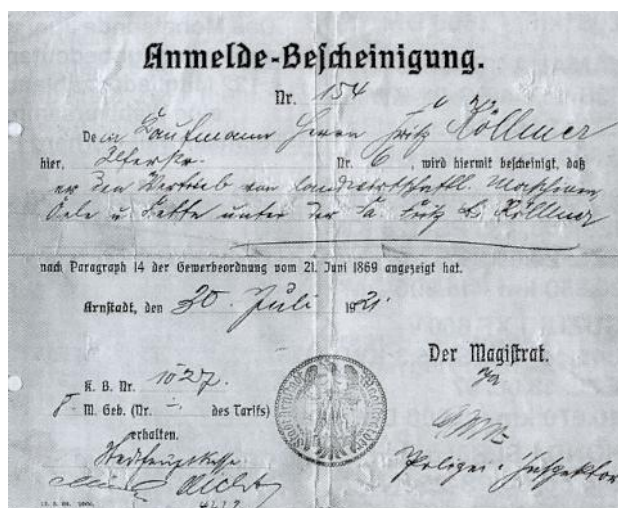 Anmelde-Bescheinigung.
Nr. 154
Dem Kaufmann Herrn Fritz Köllmer
hier, Nr. 6, wird hiermit bescheinigt, daß
er den Vertrieb von landwirtschaftl. Maschinen,
Oele u. Fette unter der Fa. Fritz Köllmer
nach Paragraph 14 der Gewerbeordnung vom 21. Juni 1869 angezeigt hat.
Arnstadt, den 30. Juli 1921.
Der Magistrat.
K. B. Nr. 1027.
M. Geb. (Nr. des Tarifs)
erhalten.
Stadthauptkasse
Polizei-Inspektor